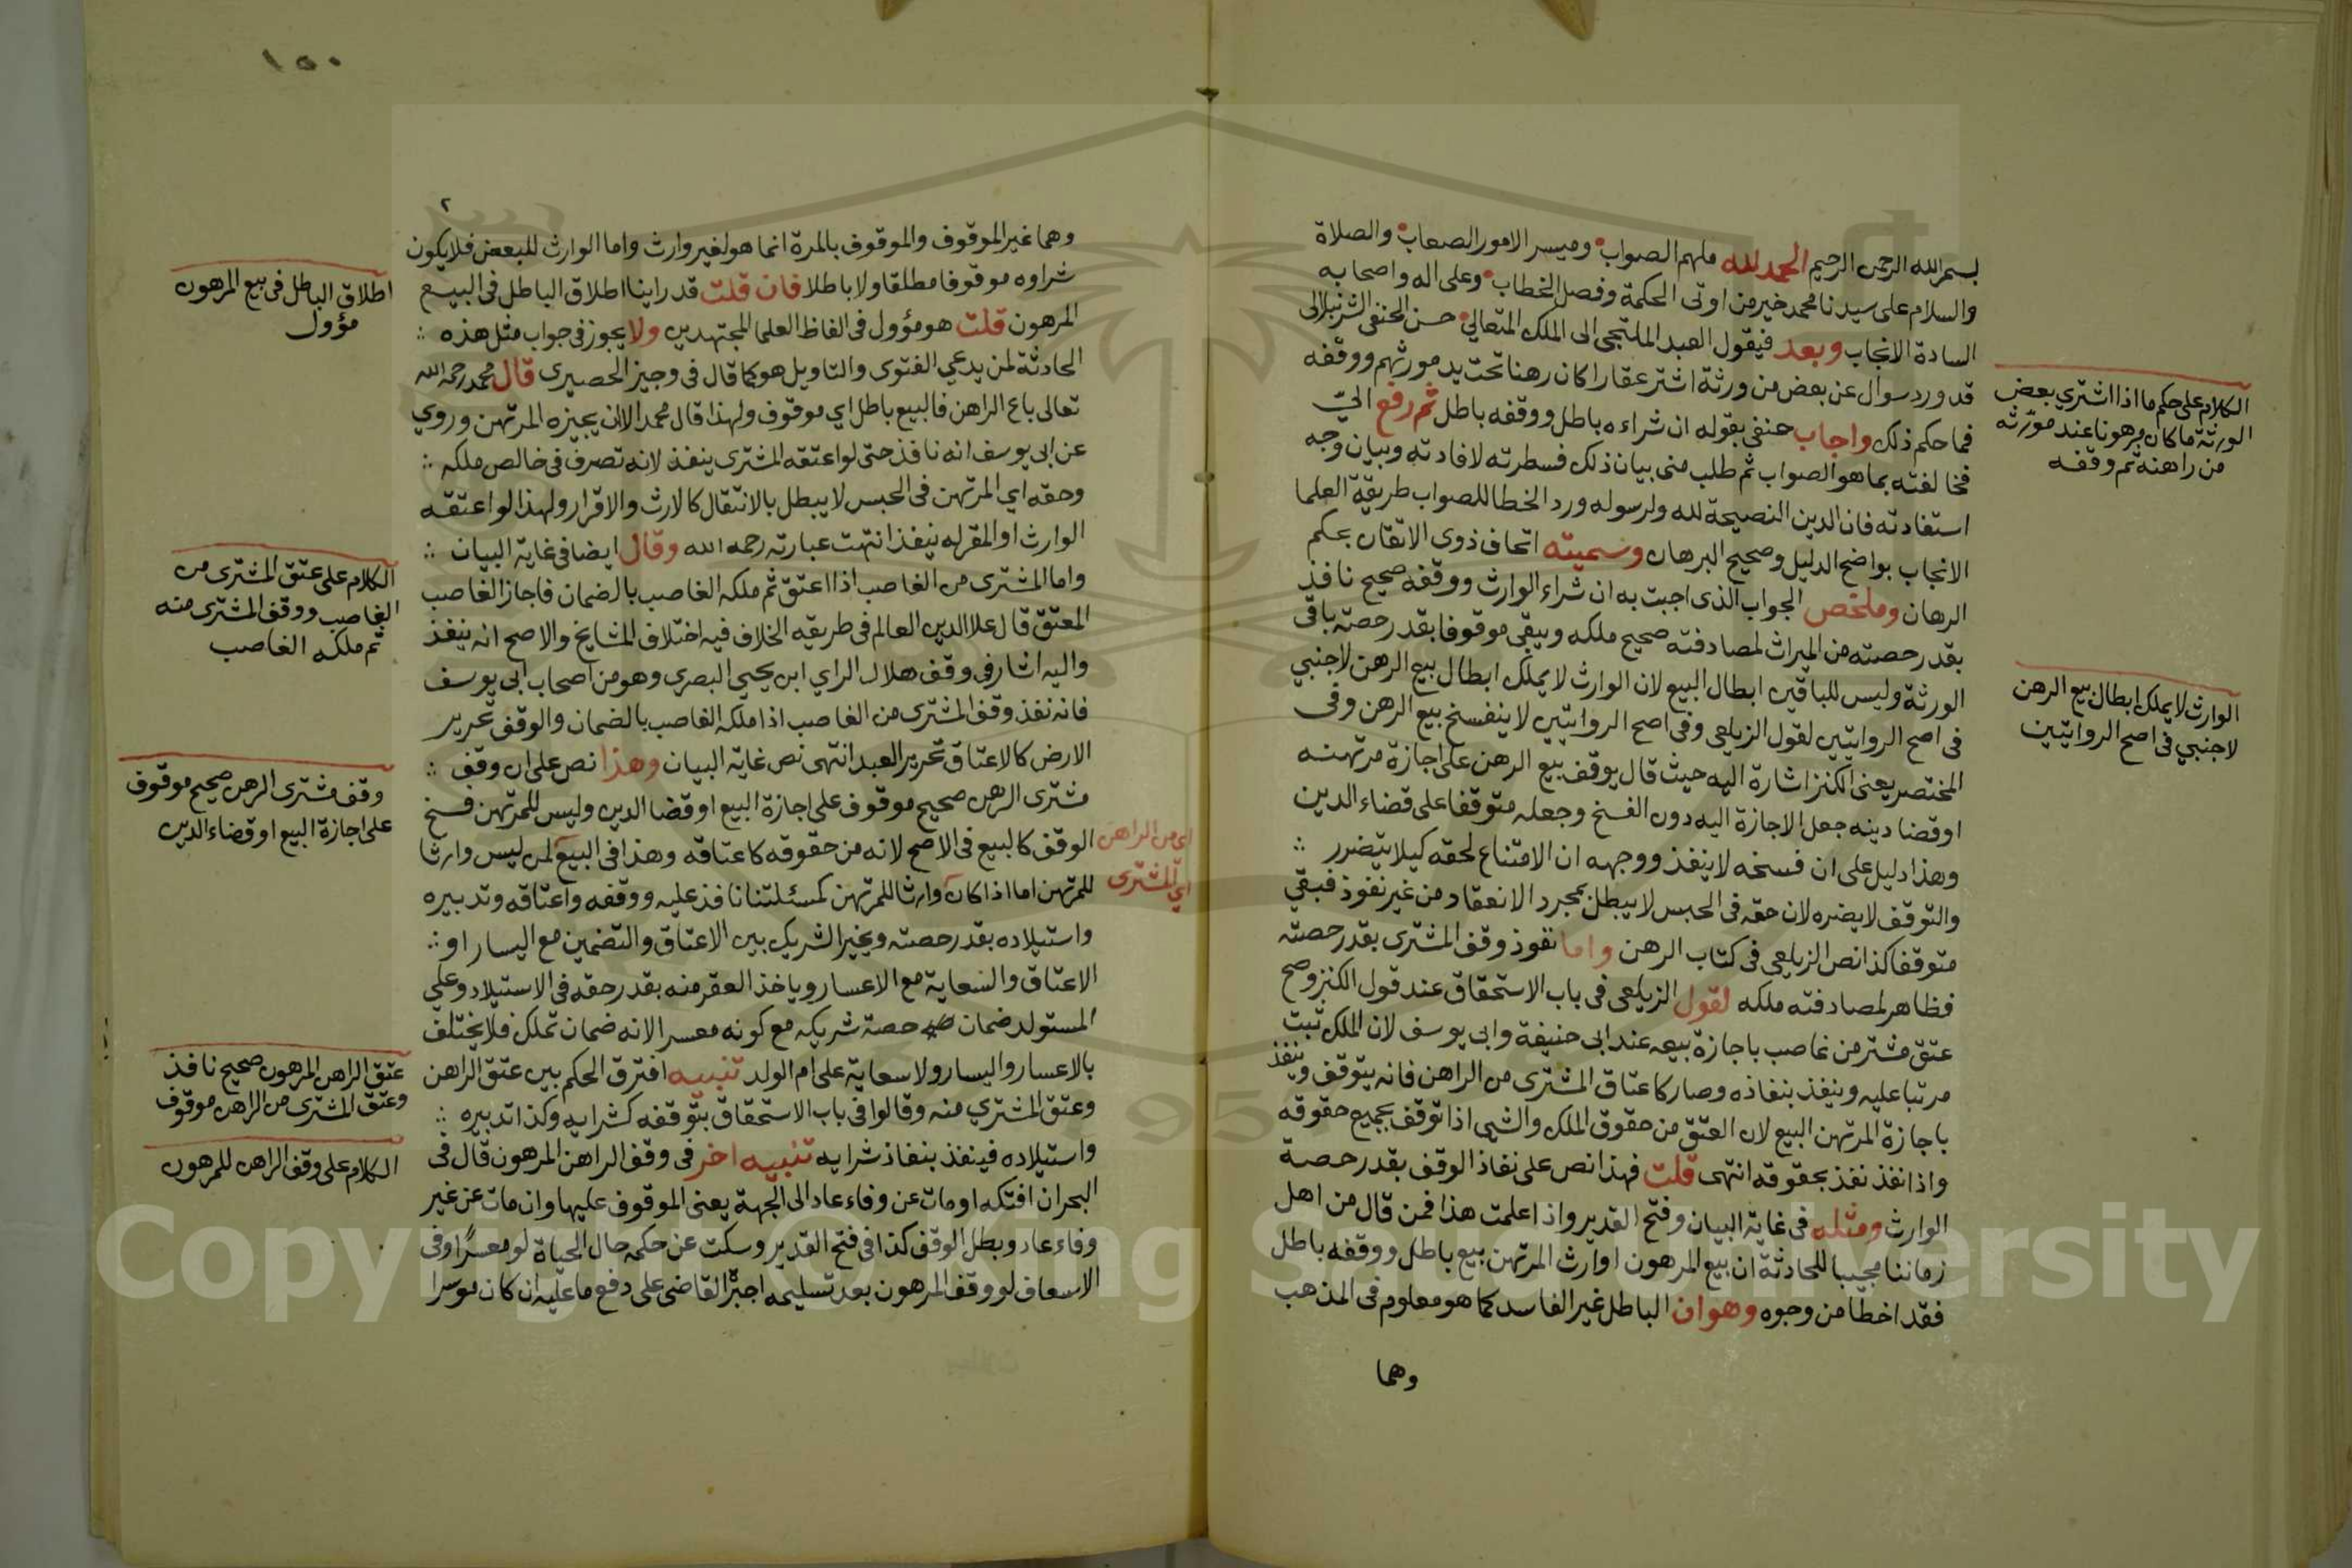 بسم الله الرحمن الرحيم الحمد لله ملهم الصواب وميسر الامور الصعاب والصلاة
والسلام على سيدنا محمد خير من اوتى الحكمة وفصل الخطاب وعلى اله واصحابه
السادة الانجاب وبعد فيقول العبد الملتجى الى الملك المتعالي حسن الحنفى الشرنبلالى
قد ورد سوال عن بعض من ورثة اشتر عقارا كان رهنا تحت يد مورثهم ووقفه
فما حكم ذلك واجاب حنفى بقوله ان شراءه باطل ووقفه باطل ثم رفع الي
فخالفته بما هو الصواب ثم طلب منى بيان ذلك فسطرته لافادته وبيان وجه
استفادته فان الدين النصيحة لله ولرسوله ورد الخطا للصواب طريقة العلما
الانجاب بواضح الدليل وصحيح البرهان وسميته اتحاف ذوى الاتقان بحكم
الرهان وملخص الجواب الذى اجبت به ان شراء الوارث ووقفه صحيح نافذ
بقدر حصته من الميراث لمصادفته صحيح ملكه ويبقى موقوفا بقدر حصته باقى
الورثة وليس للباقين ابطال البيع لان الوارث لا يملك ابطال بيع الرهن لاجنبي
فى اصح الروايتين لقول الزيلعى وفى اصح الروايتين لا ينفسخ بيع الرهن وفى
المختصر يعنى الكنز اشارة اليه حيث قال يوقف بيع الرهن على اجازة مرتهنه
اوقضا دينه جعل الاجازة اليه دون الفسخ وجعله متوقفا على قضاء الدين
وهذا دليل على ان فسخه لا ينفذ ووجهه ان الامتناع لحقه كيلا يتضرر
والتوقف لا يضره لان حقه فى الحبس لا يبطل بمجرد الانعقاد من غير نفوذ فبقي
متوقفا كذا نص الزيلعى فى كتاب الرهن واما نفوذ وقف المشترى بقدر حصته
فظاهر لمصادفته ملكه لقول الزيلعى فى باب الاستحقاق عند قول الكنز وصح
عتق مشتر من غاصب باجازة بيعه عند ابى حنيفة وابى يوسف لان الملك ثبت
مرتبا عليه وينفذ بنفاذه وصار كاعتاق المشترى من الراهن فانه يتوقف وينفذ
باجازة المرتهن البيع لان العتق من حقوق الملك والشى اذا توقف بجميع حقوقه
واذا نفذ نفذ بحقوقه انتهى قلت فهذا نص على نفاذ الوقف بقدر حصة
الوارث ومثله فى غاية البيان وفتح القدير واذا علمت هذا فمن قال من اهل
زماننا مجيبا للحادثة ان بيع المرهون اوارث المرتهن بيع باطل ووقفه باطل
فقد اخطا من وجوه وهو ان الباطل غير الفاسد كما هو معلوم فى المذهب
وهما
الكلام على حكم ما اذا اشتري بعض
الورثة ما كان مرهونا عند مورثه
من راهنه ثم وقفه
الوارث لا يملك ابطال بيع الرهن
لاجنبي فى اصح الروايتين
١٥٠
٢
وهما غير الموقوف والموقوف بالمرة انما هو لغير وارث واما الوارث للبعض فلا يكون
شراوه موقوفا مطلقا ولا باطلا فان قلت قد راينا اطلاق الباطل فى البيع
المرهون قلت هو مؤول فى الفاظ العلما المجتهدين ولا يجوز فى جواب مثل هذه
الحادثة لمن يدعي الفتوى والتاويل هو كما قال فى وجيز الحصيرى قال محمد رحمه الله
تعالى باع الراهن فالبيع باطل اي موقوف ولهذا قال محمد الا ان يجيزه المرتهن وروي
عن ابى يوسف انه نافذ حتى لو اعتقه المشترى ينفذ لانه تصرف فى خالص ملكه
وحقه اي المرتهن فى الحبس لا يبطل بالانتقال كالارث والاقرار ولهذا لو اعتقه
الوارث او المقر له ينفذ انتهت عبارته رحمه الله وقال ايضا فى غاية البيان
واما المشترى من الغاصب اذا اعتق ثم ملكه الغاصب بالضمان فاجاز الغاصب
المعتق قال علا الدين العالم فى طريقه الخلاف فيه اختلاف المشايخ والاصح انه ينفذ
واليه اشار فى وقف هلال الراي ابن يحيى البصرى وهو من اصحاب ابى يوسف
فانه نفذ وقف المشترى من الغاصب اذا ملكه الغاصب بالضمان والوقف تحرير
الارض كالاعتاق تحرير العبد انتهى نص غاية البيان وهذا نص على ان وقف
مشترى الرهن صحيح موقوف على اجازة البيع اوقضا الدين وليس للمرتهن فسخ
الوقف كالبيع فى الاصح لانه من حقوقه كاعتاقه وهذا فى البيع لمن ليس وارثا
للمرتهن اما اذا كان وارثا للمرتهن كمسئلتنا نافذ عليه ووقفه واعتاقه وتدبيره
واستيلاده بقدر حصته ويخير الشريك بين الاعتاق والتضمين مع اليسار او
الاعتاق والسعاية مع الاعسار وياخذ العقر منه بقدر حقه فى الاستيلاد وعلي
المستولد ضمان حصة شريكه مع كونه معسرا لانه ضمان تملك فلا يختلف
بالاعسار واليسار ولا سعاية على ام الولد تنبيه افترق الحكم بين عتق الراهن
وعتق المشتري منه وقالوا فى باب الاستحقاق بتوقفه كشرايه وكذا تدبيره
واستيلاده فينفذ بنفاذ شرايه تنبيه اخر فى وقف الراهن المرهون قال فى
البحر ان افتكه اومات عن وفاء عاد الى الجهة يعنى الموقوف عليها وان مات عن غير
وفاء عاد وبطل الوقف كذا فى فتح القدير وسكت عن حكمه حال الحياة لو معسرا وفى
الاسعاف لو وقف المرهون بعد تسليمه اجبره القاضى على دفع ما عليه ان كان موسرا
اي من الراهن
اي المشترى
اطلاق الباطل فى بيع المرهون
مؤول
الكلام على عتق المشترى من
الغاصب ووقف المشترى منه
ثم ملكه الغاصب
وقف مشترى الرهن صحيح موقوف
على اجازة البيع اوقضاء الدين
عتق الراهن المرهون صحيح نافذ
وعتق المشترى من الراهن موقوف
الكلام على وقف الراهن للمرهون
Copyright © King Saud University